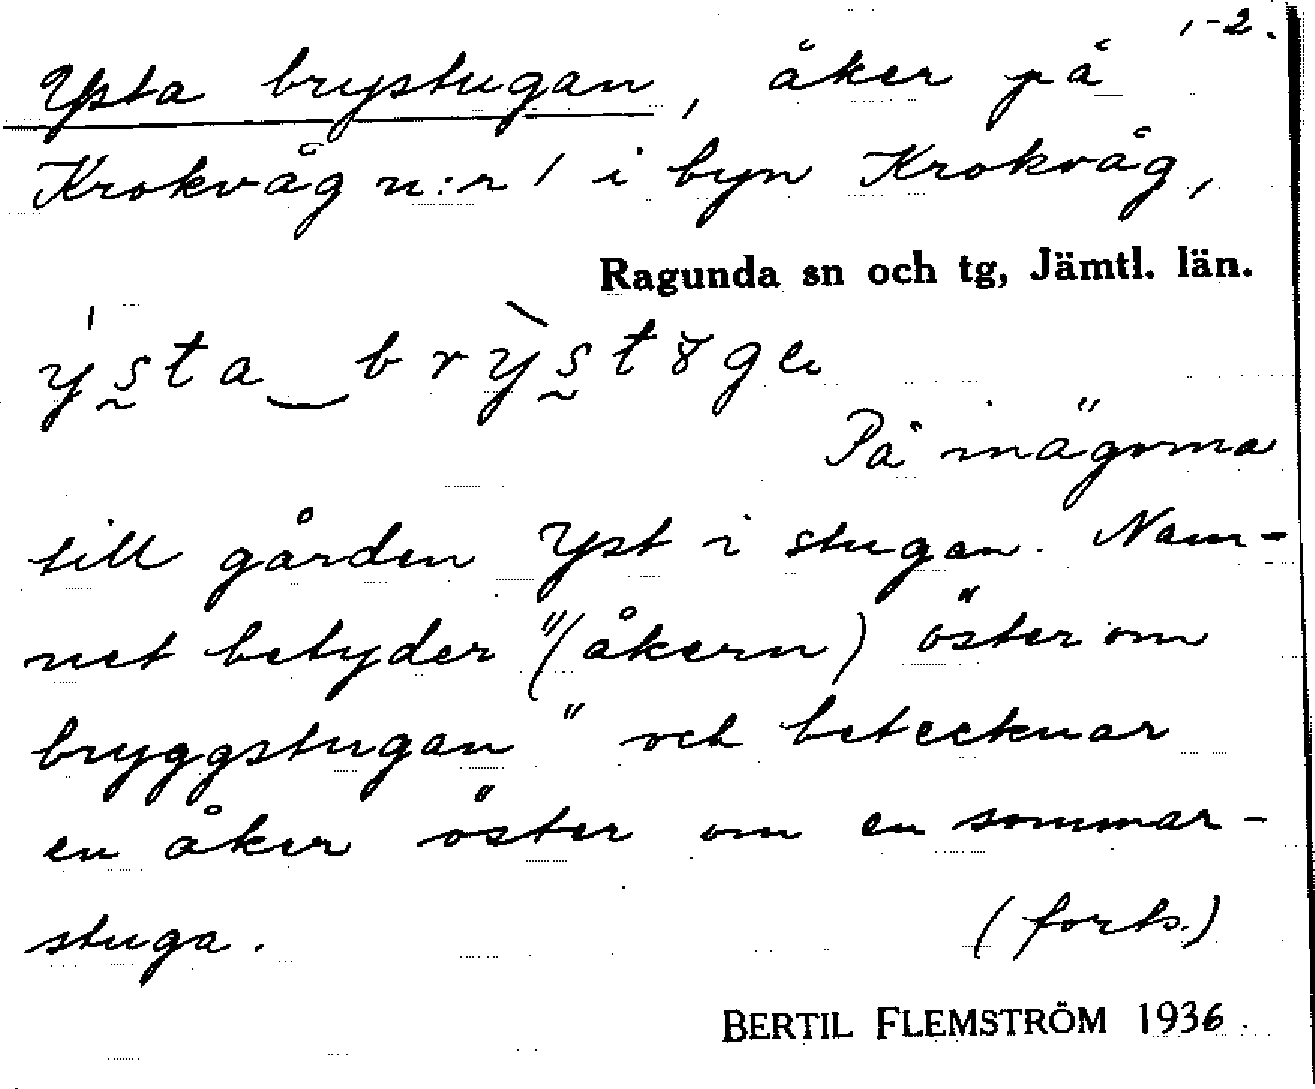 1-2.
Ysta brystugan, åker på
Krokvåg n:r 1 i byn Krokvåg,
Ragunda sn och tg, Jämtl. län.
På inägorna
till gården Yst i stugan. Nam-
net betyder "(åkern) öster om
bryggstugan" och betecknar
en åker öster om en sommar-
stuga.
(forts.)
BERTIL FLEMSTRÖM 1936.